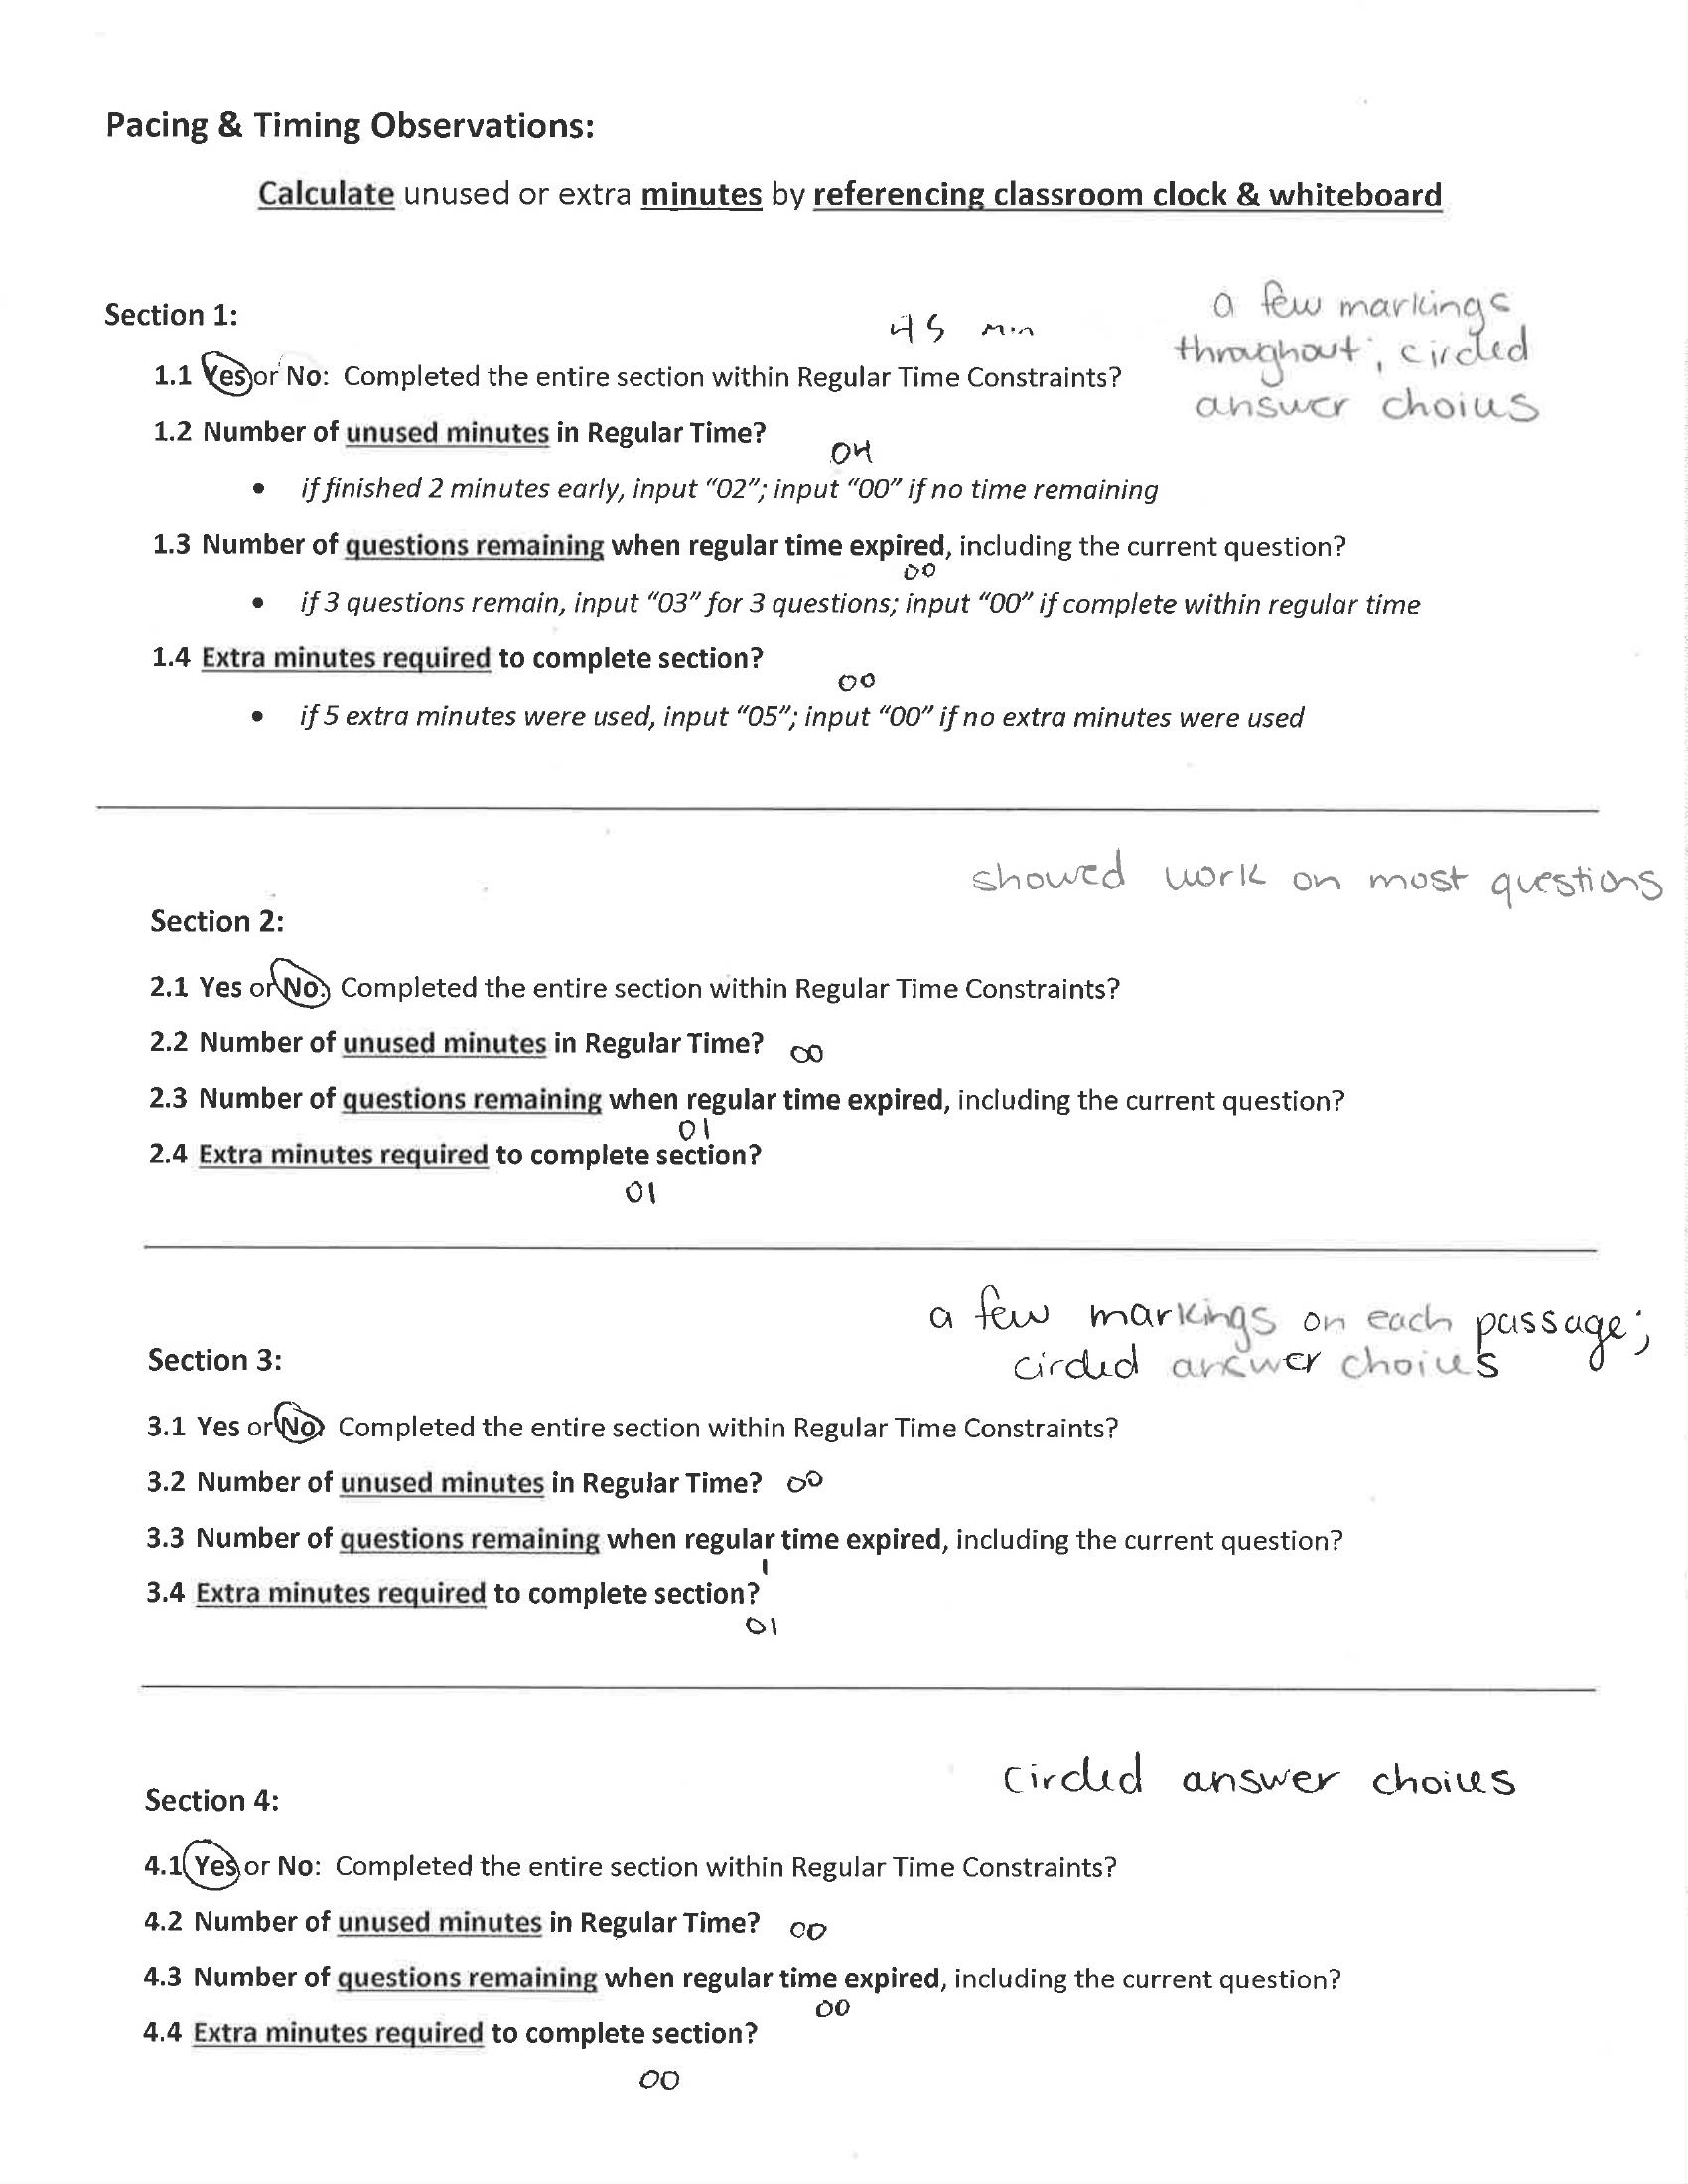 Pacing & Timing Observations:
Calculate unused or extra minutes by referencing classroom clock & whiteboard
Section 1:
45 min
a few markings
throughout; circled
answer choices
1.1 Yes or No: Completed the entire section within Regular Time Constraints?
1.2 Number of unused minutes in Regular Time?
04
• if finished 2 minutes early, input “02”; input “00” if no time remaining
1.3 Number of questions remaining when regular time expired, including the current question?
00
• if 3 questions remain, input “03” for 3 questions; input “00” if complete within regular time
1.4 Extra minutes required to complete section?
00
• if 5 extra minutes were used, input “05”; input “00” if no extra minutes were used
showed work on most questions
Section 2:
2.1 Yes or No: Completed the entire section within Regular Time Constraints?
2.2 Number of unused minutes in Regular Time? 00
2.3 Number of questions remaining when regular time expired, including the current question?
01
2.4 Extra minutes required to complete section?
01
a few markings on each passage;
circled answer choices
Section 3:
3.1 Yes or No Completed the entire section within Regular Time Constraints?
3.2 Number of unused minutes in Regular Time? 00
3.3 Number of questions remaining when regular time expired, including the current question?
1
3.4 Extra minutes required to complete section?
01
circled answer choices
Section 4:
4.1 Yes or No: Completed the entire section within Regular Time Constraints?
4.2 Number of unused minutes in Regular Time? 00
4.3 Number of questions remaining when regular time expired, including the current question?
00
4.4 Extra minutes required to complete section?
00